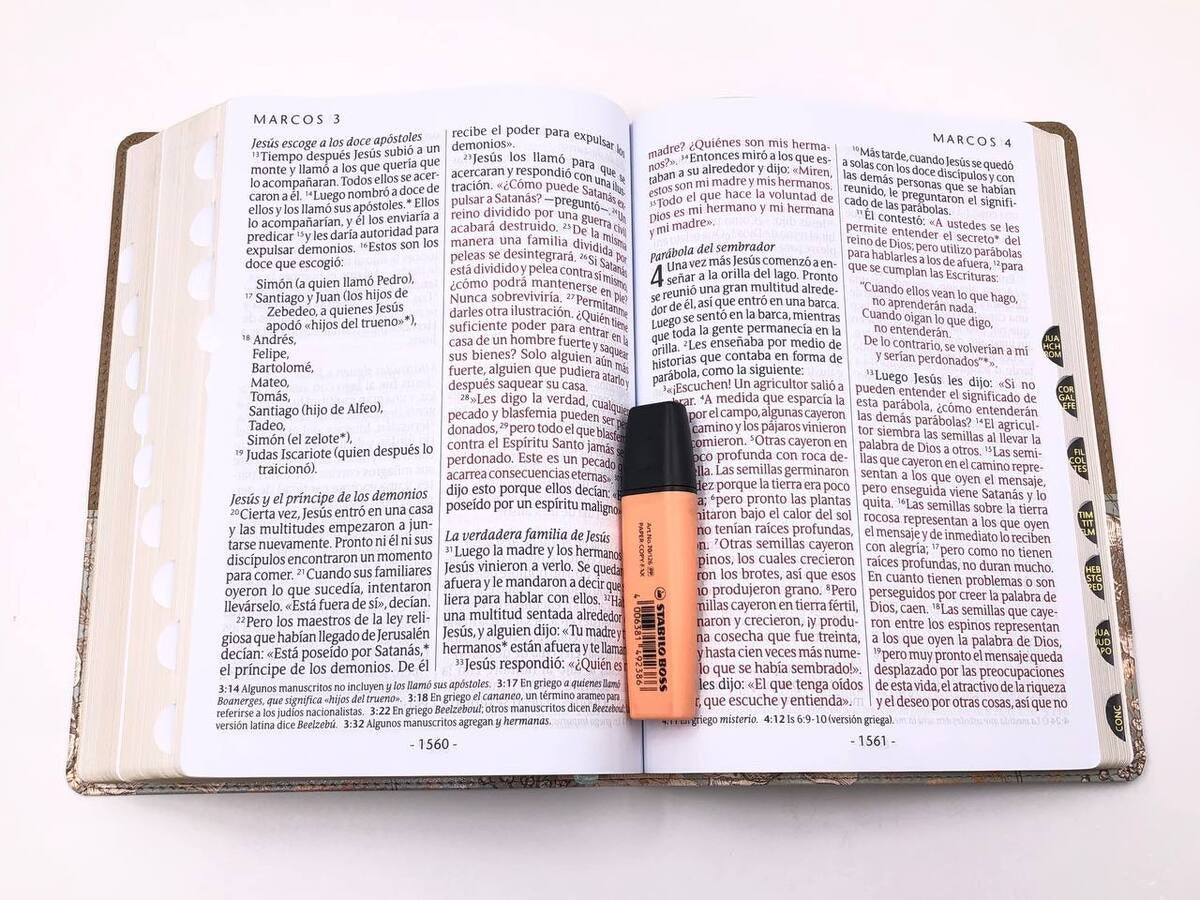 MARCOS 3
Jesús escoge a los doce apóstoles
13Tiempo después Jesús subió a un
monte y llamó a los que quería que
lo acompañaran. Todos ellos se acer-
caron a él. 14Luego nombró a doce de
ellos y los llamó sus apóstoles.* Ellos
lo acompañarían, y él los enviaría a
predicar 15y les daría autoridad para
expulsar demonios. 16Estos son los
doce que escogió:
Simón (a quien llamó Pedro),
17 Santiago y Juan (los hijos de
Zebedeo, a quienes Jesús
apodó «hijos del trueno»*),
18 Andrés,
Felipe,
Bartolomé,
Mateo,
Tomás,
Santiago (hijo de Alfeo),
Tadeo,
Simón (el zelote*),
19 Judas Iscariote (quien después lo
traicionó).
Jesús y el príncipe de los demonios
20Cierta vez, Jesús entró en una casa
y las multitudes empezaron a jun-
tarse nuevamente. Pronto ni él ni sus
discípulos encontraron un momento
para comer. 21Cuando sus familiares
oyeron lo que sucedía, intentaron
llevárselo. «Está fuera de sí», decían.
22Pero los maestros de la ley reli-
giosa que habían llegado de Jerusalén
decían: «Está poseído por Satanás,*
el príncipe de los demonios. De él
recibe el poder para expulsar los
demonios».
23Jesús los llamó para que se
acercaran y respondió con una ilus-
tración. «¿Cómo puede Satanás ex-
pulsar a Satanás? —preguntó—. 24Un
reino dividido por una guerra civil
acabará destruido. 25De la misma
manera una familia dividida por
peleas se desintegrará. 26Si Satanás
está dividido y pelea contra sí mismo,
¿cómo podrá mantenerse en pie?
Nunca sobreviviría. 27Permítanme
darles otra ilustración. ¿Quién tiene
suficiente poder para entrar en la
casa de un hombre fuerte y saquear
sus bienes? Solo alguien aún más
fuerte, alguien que pudiera atarlo y
después saquear su casa.
28»Les digo la verdad, cualquier
pecado y blasfemia pueden ser per-
donados, 29pero todo el que blasfeme
contra el Espíritu Santo jamás se
perdonado. Este es un pecado q
acarrea consecuencias eternas».
dijo esto porque ellos decían: «E
poseído por un espíritu maligno»
La verdadera familia de Jesús
31 Luego la madre y los hermanos
Jesús vinieron a verlo. Se queda
afuera y le mandaron a decir que
liera para hablar con ellos. 32Ha
una multitud sentada alrededor
Jesús, y alguien dijo: «Tu madre y
hermanos* están afuera y te llaman
33Jesús respondió: «¿Quién es
3:14 Algunos manuscritos no incluyen y los llamó sus apóstoles. 3:17 En griego a quienes llamó
Boanerges, que significa «hijos del trueno». 3:18 En griego el cananeo, un término arameo para
referirse a los judíos nacionalistas. 3:22 En griego Beelzeboul; otros manuscritos dicen Beezeboul;
versión latina dice Beelzebú. 3:32 Algunos manuscritos agregan y hermanas.
- 1560 -
MARCOS 4
madre? ¿Quiénes son mis herma-
nos?». 34Entonces miró a los que es-
taban a su alrededor y dijo: «Miren,
estos son mi madre y mis hermanos.
35Todo el que hace la voluntad de
Dios es mi hermano y mi hermana
y mi madre».
Parábola del sembrador
4 Una vez más Jesús comenzó a en-
señar a la orilla del lago. Pronto
se reunió una gran multitud alrede-
dor de él, así que entró en una barca.
Luego se sentó en la barca, mientras
que toda la gente permanecía en la
orilla. 2Les enseñaba por medio de
historias que contaba en forma de
parábola, como la siguiente:
3«¡Escuchen! Un agricultor salió a
brar. 4A medida que esparcía la
por el campo, algunas cayeron
camino y los pájaros vinieron
comieron. 5Otras cayeron en
poco profunda con roca de-
lla. Las semillas germinaron
dez porque la tierra era poco
; 6pero pronto las plantas
itaron bajo el calor del sol
no tenían raíces profundas,
. 7Otras semillas cayeron
pinos, los cuales crecieron
on los brotes, así que esos
produjeron grano. 8Pero
millas cayeron en tierra fértil,
n y crecieron, ¡y produ-
na cosecha que fue treinta,
y hasta cien veces más nume-
lo que se había sembrado!».
les dijo: «El que tenga oídos
, que escuche y entienda».
10Más tarde, cuando Jesús se quedó
a solas con los doce discípulos y con
las demás personas que se habían
reunido, le preguntaron el signifi-
cado de las parábolas.
11Él contestó: «A ustedes se les
permite entender el secreto* del
reino de Dios; pero utilizo parábolas
para hablarles a los de afuera, 12para
que se cumplan las Escrituras:
"Cuando ellos vean lo que hago,
no aprenderán nada.
Cuando oigan lo que digo,
no entenderán.
De lo contrario, se volverían a mí
y serían perdonados"*».
13Luego Jesús les dijo: «Si no
pueden entender el significado de
esta parábola, ¿cómo entenderán
las demás parábolas? 14El agricul-
tor siembra las semillas al llevar la
palabra de Dios a otros. 15Las semi-
llas que cayeron en el camino repre-
sentan a los que oyen el mensaje,
pero enseguida viene Satanás y lo
quita. 16Las semillas sobre la tierra
rocosa representan a los que oyen
el mensaje y de inmediato lo reciben
con alegría; 17pero como no tienen
raíces profundas, no duran mucho.
En cuanto tienen problemas o son
perseguidos por creer la palabra de
Dios, caen. 18Las semillas que caye-
ron entre los espinos representan
a los que oyen la palabra de Dios,
19pero muy pronto el mensaje queda
desplazado por las preocupaciones
de esta vida, el atractivo de la riqueza
y el deseo por otras cosas, así que no
4:11 En griego misterio. 4:12 Is 6:9-10 (versión griega).
- 1561 -
JUA
HCH
ROM
COR
GAL
EFE
FIL
COL
TES
TIM
TIT
FLM
HEB
STG
PED
JUA
JUD
APO
CONC
Art.No.70/126
PAPER COPY FAX
STABILO BOSS
4 006381 492386